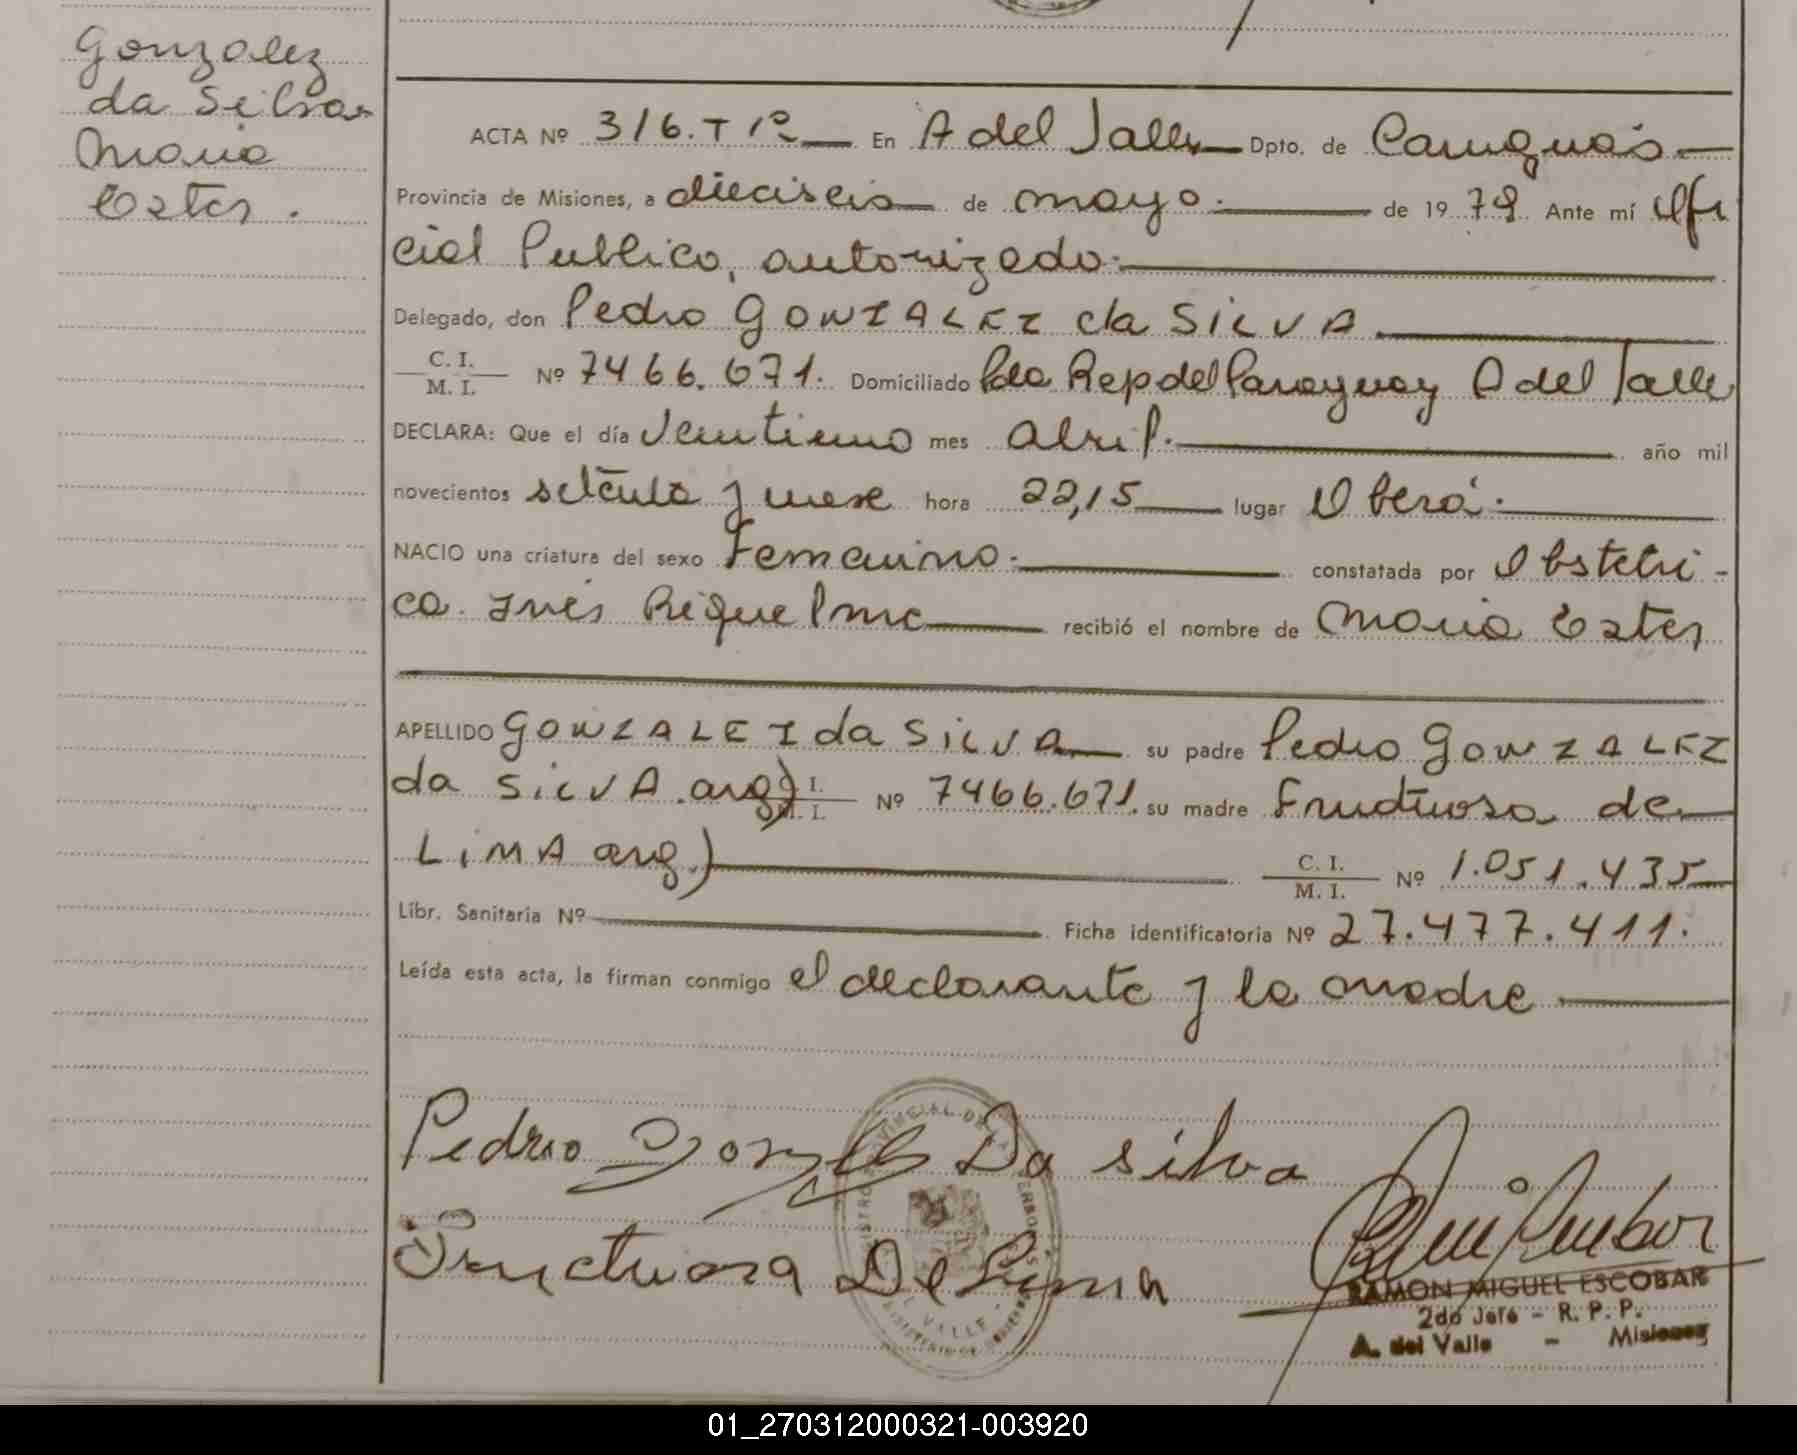 Gonzalez
da Silva
Maria
Ester.
ACTA Nº 316. T 1º En A del Valle Dpto. de Cainguás
Provincia de Misiones, a dieciseis de mayo. de 19 79 Ante mí Ofi
cial Publico, autorizado.
Delegado, don Pedro GONZALEZ da SILVA
C. I.
M. I. Nº 7466.671. Domiciliado Pda Rep del Paraguay A del Valle
DECLARA: Que el día veintiuno mes abril. año mil
novecientos setenta y nueve hora 22,15 lugar Oberá.
NACIO una criatura del sexo Femenino. constatada por Obstetri-
ca. Inés Riquelme recibió el nombre de Maria Ester
APELLIDO GONZALEZ da SILVA su padre Pedro GONZALEZ
da SILVA. arg) Nº 7466.671. su madre Fructuosa de
LIMA arg.) C. I.
M. I. Nº 1.051.435
Libr. Sanitaria Nº Ficha identificatoria Nº 27.477.411.
Leída esta acta, la firman conmigo el declarante y la madre
Pedro Gonzalez Da silva
Fructuosa De Lima
RAMON MIGUEL ESCOBAR
2do Jefe - R. P. P.
A. del Valle - Misiones
01_270312000321-003920